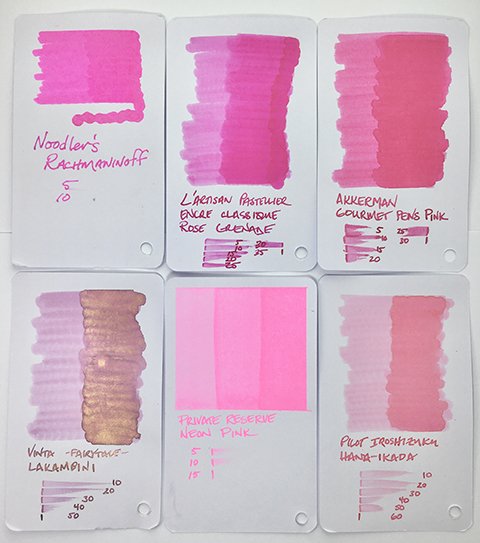 Noodler's
Rachmaninoff
5
10
L'Artisan Pastellier
Encre Classique
Rose Grenade
5 20
10 25
15
20
25
Akkerman
Gourmet Pens Pink
5 25
10 30
15
20
Vinta -Fairytale-
Lakambini
10
20
30
40
50
Private Reserve
Neon Pink
5
10
15
Pilot Iroshizuku
Hana-Ikada
10
20
30
40
50
60